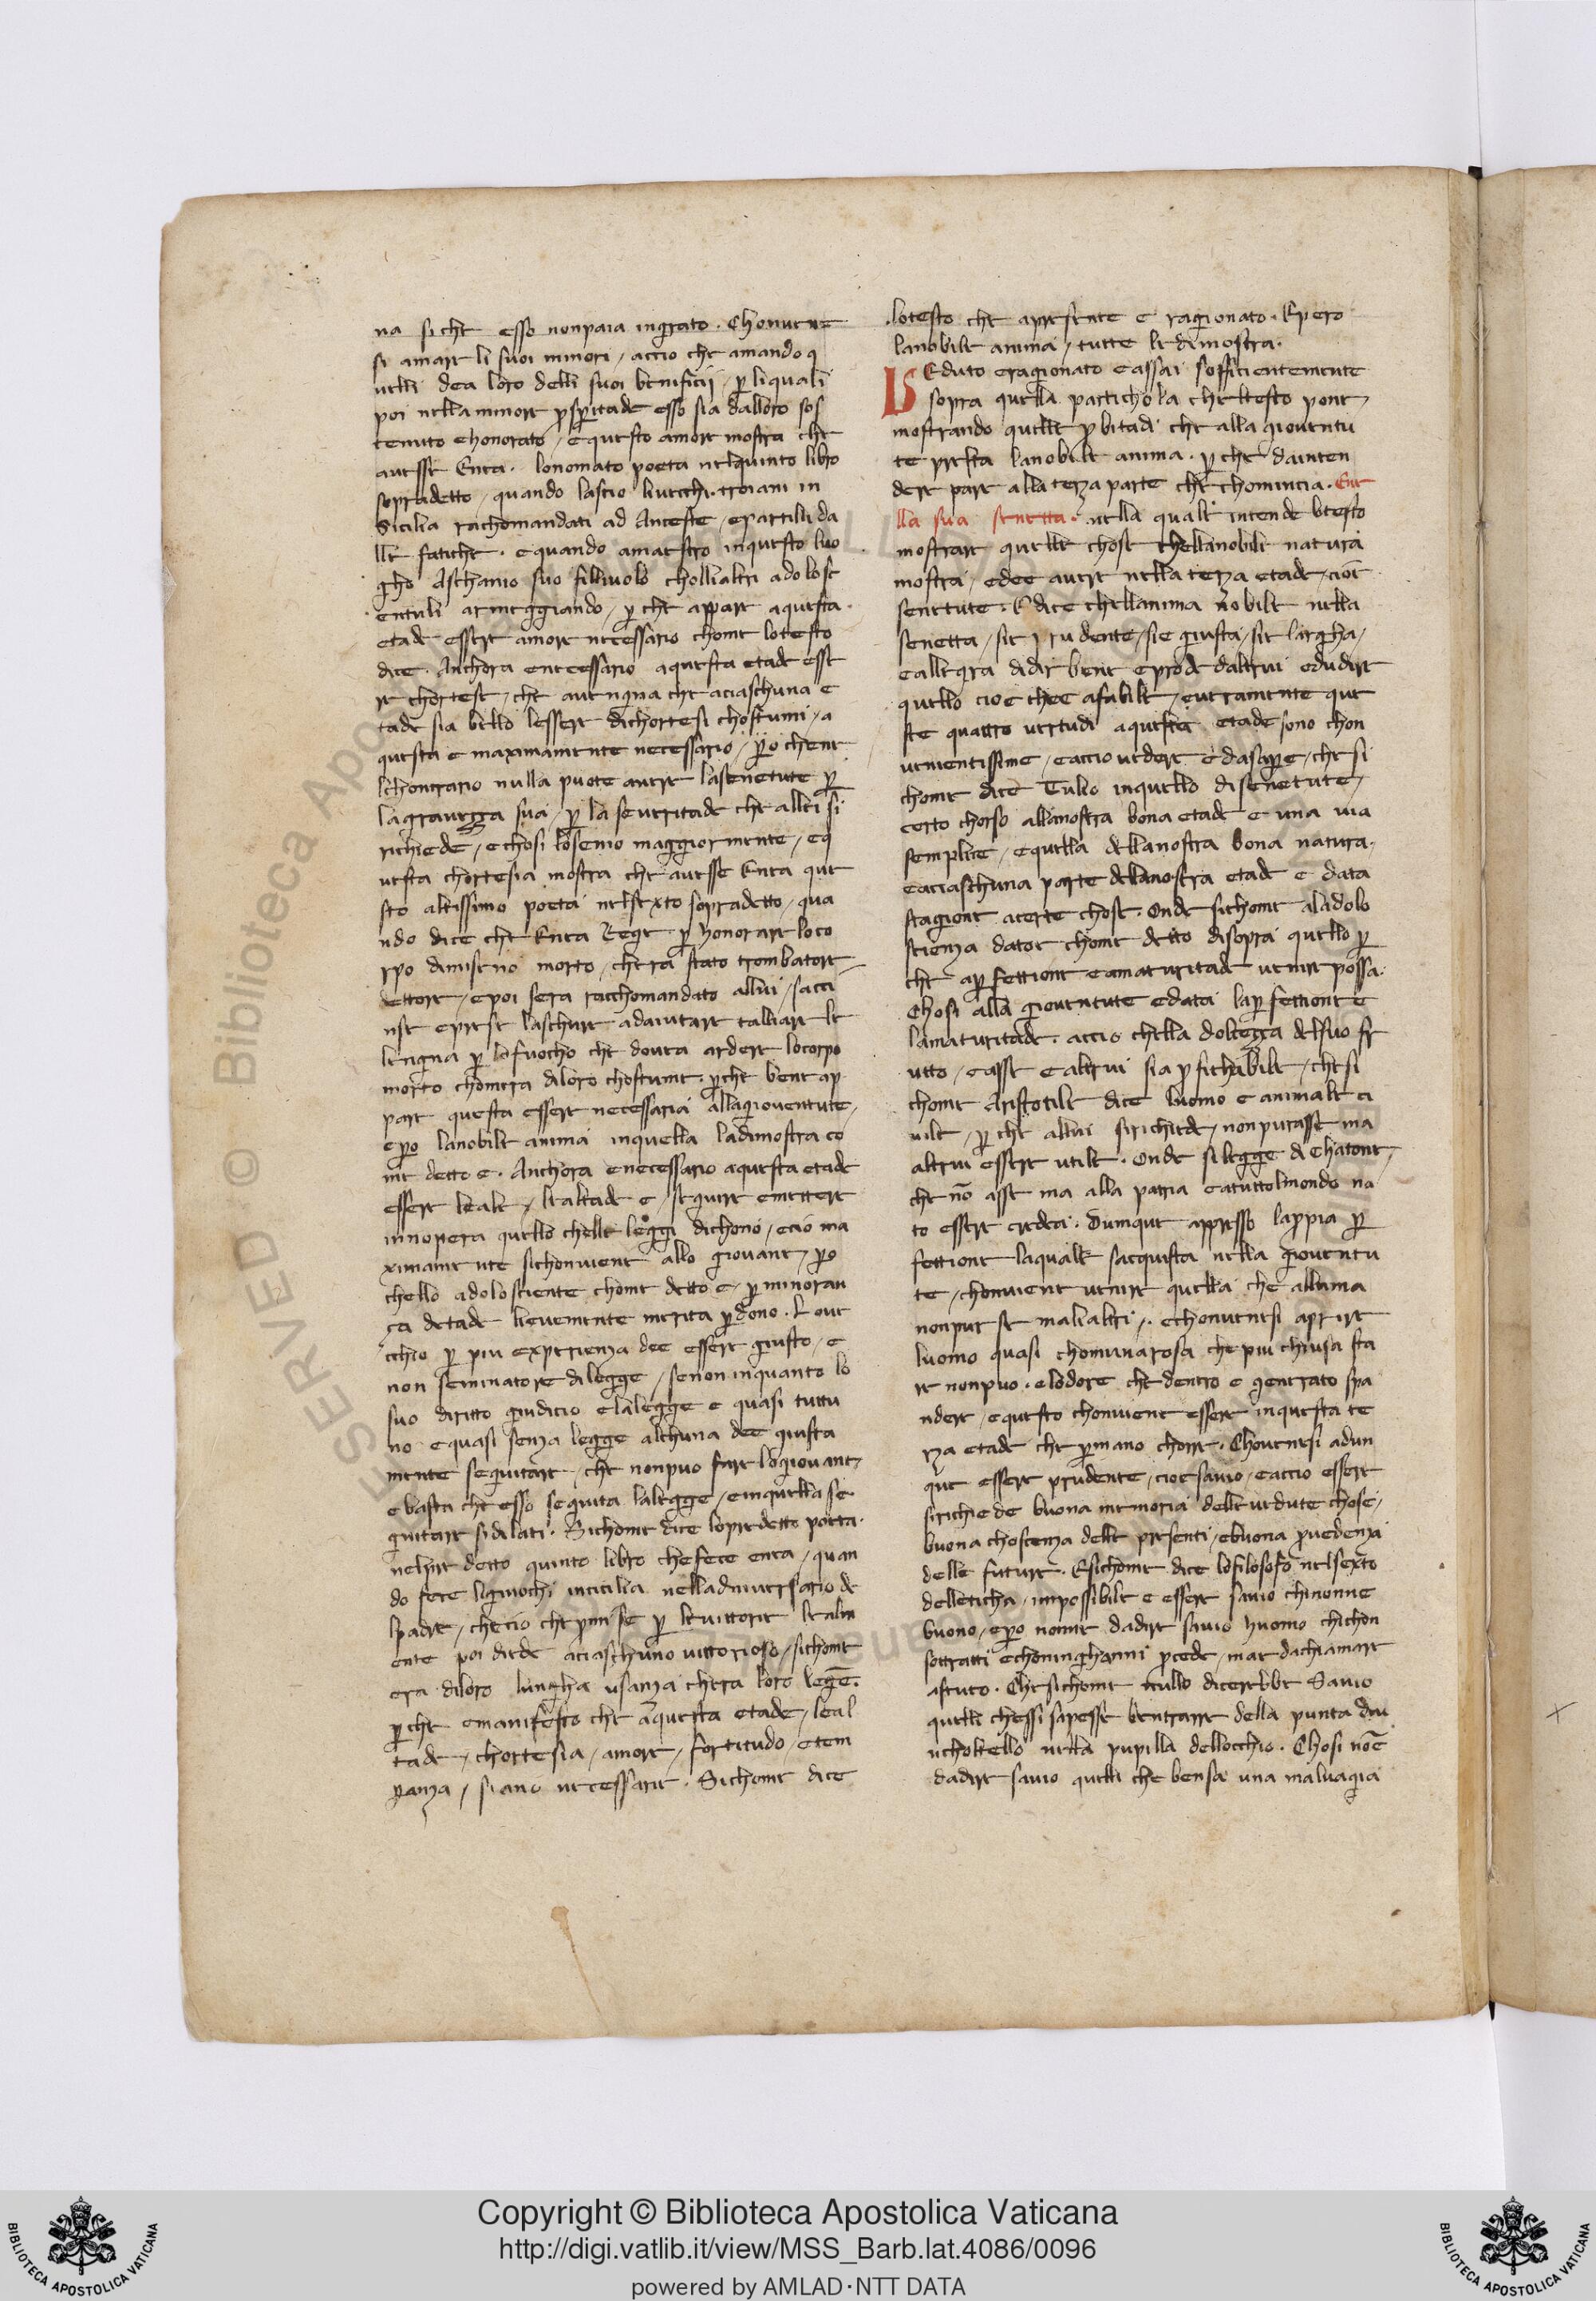 na si che esso non paia ingrato. Chonvene
si amare li suoi minori / accio che amando q
uelli dea loro delli suoi benificii / ꝑ li quali
poi nella minore ꝓsperitade esso sia dalloro sos
tenuto e honorato / e questo amore mostra che
avesse Enea. lonomato poeta nel quinto libro
sopradetto / quando lascio li vecchi troiani in
Sicilia rachomandati ad Anceste / e partilli da
lle fatiche. e quando amaestro in questo luo
gho Aschanio suo filliuolo cholli altri adolosc
entuli armeggiando / ꝑ che appare a questa
etade essere amore necessario chome lo testo
dice. Anchora e necessario a questa etade esse
re chortese / che avengna che a ciaschuna e
tade sia bello lessere di chortesi chostumi / a
questa e maximamente necessario / ꝑo che ne
lchontrario nulla puote avere la senetute ꝑ
la gravezza sua / ꝑ la severitade che allei si
richiede / e chosi lo senio maggiormente / e q
uesta chortesia mostra che avesse Enea que
sto altissimo poeta nel sexto sopradetto / qua
ndo dice che Enea Rege ꝑ honorare lo co
rpo di miseno morto / chera stato trombatore
dettore / e poi sera racchomandato allui / sacci
nse e prese la schure ad aiutare talliare le
lengna ꝑ lo fuocho che dovea ardere lo corpo
morto chomera di loro chostume. ꝑ che bene ap
pare questa essere necessaria alla gioventute /
e ꝑo la nobile anima in quella la dimostra co
me detto e. Anchora e necessario a questa etade
essere leale / lealtade e / seguire e mettere
in opera quello chelle leggi dichono / e cio ma
ximamente si chonviene allo giovane / ꝑo
chello adolosciente chome detto e / ꝑ minoran
ça detade lievemente merita ꝑdono. Lo ve
cchio ꝑ piu experienza dee essere giusto / e
non seminatore di legge / se non in quanto lo
suo diritto giudicio e la legge e quasi tuttu
no e quasi senza legge alchuna dee giusta
mente seguitare / che non puo fare lo giovane /
e basta che esso seguita la legge / e in quella se
guitare si dilati. Sichome dice lo predetto poeta
nel predetto quinto libro che fece enea / quan
do fece li giuochi in cicilia nelladniversario de
lpadre / che cio che promise ꝑ le vittorie lealm
ente poi diede a ciaschuno vittorioso / sichome
era di loro lungha usanza chera loro legē.
ꝑ che e manifesto che a questa etade / leal
tade / chortesia / amore / fortitudo / e tem
ꝑanza / siano necessarie. Sichome dice
lo testo che apresente e ragionato. E pero
la nobile anima / tutte le dimostra.
VEduto e ragionato e assai sofficientemente
sopra quella partichola che ltesto pone /
mostrando quelle ꝓbitadi che alla gioventu
te presta la nobile anima. ꝑ che da inten
dere pare alla terza parte che chomincia. E ne
lla sua senetta. nella quale intende ltesto
mostrare quelle chose chella nobile natura
mostra / e dee avere nella terza etade / cioe
senettute. E dice chellanima nobile nella
senetta / sie prudente / sie giusta / sie largha /
e allegra di dir bene e prode daltrui e dudire
quello cioe chee afabile / e veramente que
ste quattro vertudi a questa etade sono chon
venientissime / e accio vedere e da sapere / che si
chome dice Tulio in quello di senetute /
certo chorso alla nostra bona etade e una via
semplice / e quella della nostra bona natura.
e a ciaschuna parte della nostra etade e data
stagione a certe chose. Onde sichome a ladolo
scienza dato e chome detto di sopra quello ꝑ
che a ꝑfettione e a maturitade venire possa.
Chosi alla gioventute e data la ꝑfettione e
la maturitade. accio chella dolcezza del suo fr
utto / e a sse e altrui sia ꝓfichabile / che si
chome Aristotile dice luomo e animale ci
vile / ꝑ che allui si richiede / non pur a sse ma
altrui essere utile. Onde si legge di Chatone /
che nō a sse ma alla patria e a tutto lmondo na
to essere credea. Dumque appresso la ꝓpia ꝑ
fettione la quale sacquista nella gioventu
te / chonviene venire quella che alluma
non pur se ma li altri / e chonvenesi aprire
luomo quasi chomuna rosa che piu chiusa sta
re non puo. e lodore che dentro e generato spa
ndere / e questo chonviene essere in questa te
rza etade che ꝑ mano chorre. Chovenesi adun
que essere prudente / cioe savio / e accio essere
si richiede buona memoria delle vedute chose /
buona choscenza delle presenti / e buona ꝓvedenza
delle future. E sichome dice lo filosofo nel sexto
delleticha / impossibile e essere savio chi non ne
buono / e ꝑo non ne da dire savio huomo chi chon
sottratti e chon inghanni ꝓcede / ma e da chiamare
astuto. Che sichome nullo dicerebbe Savio
quelli chessi sapesse ben trarre della punta du
ncholtello nella pupilla dellocchio. Chosi nō e
da dire savio quelli che ben sa una malvagia
SERVED © Biblioteca Apo
Copyright © Biblioteca Apostolica Vaticana
http://digi.vatlib.it/view/MSS_Barb.lat.4086/0096
powered by AMLAD·NTT DATA
BIBLIOTECA APOSTOLICA VATICANA
BIBLIOTECA APOSTOLICA VATICANA